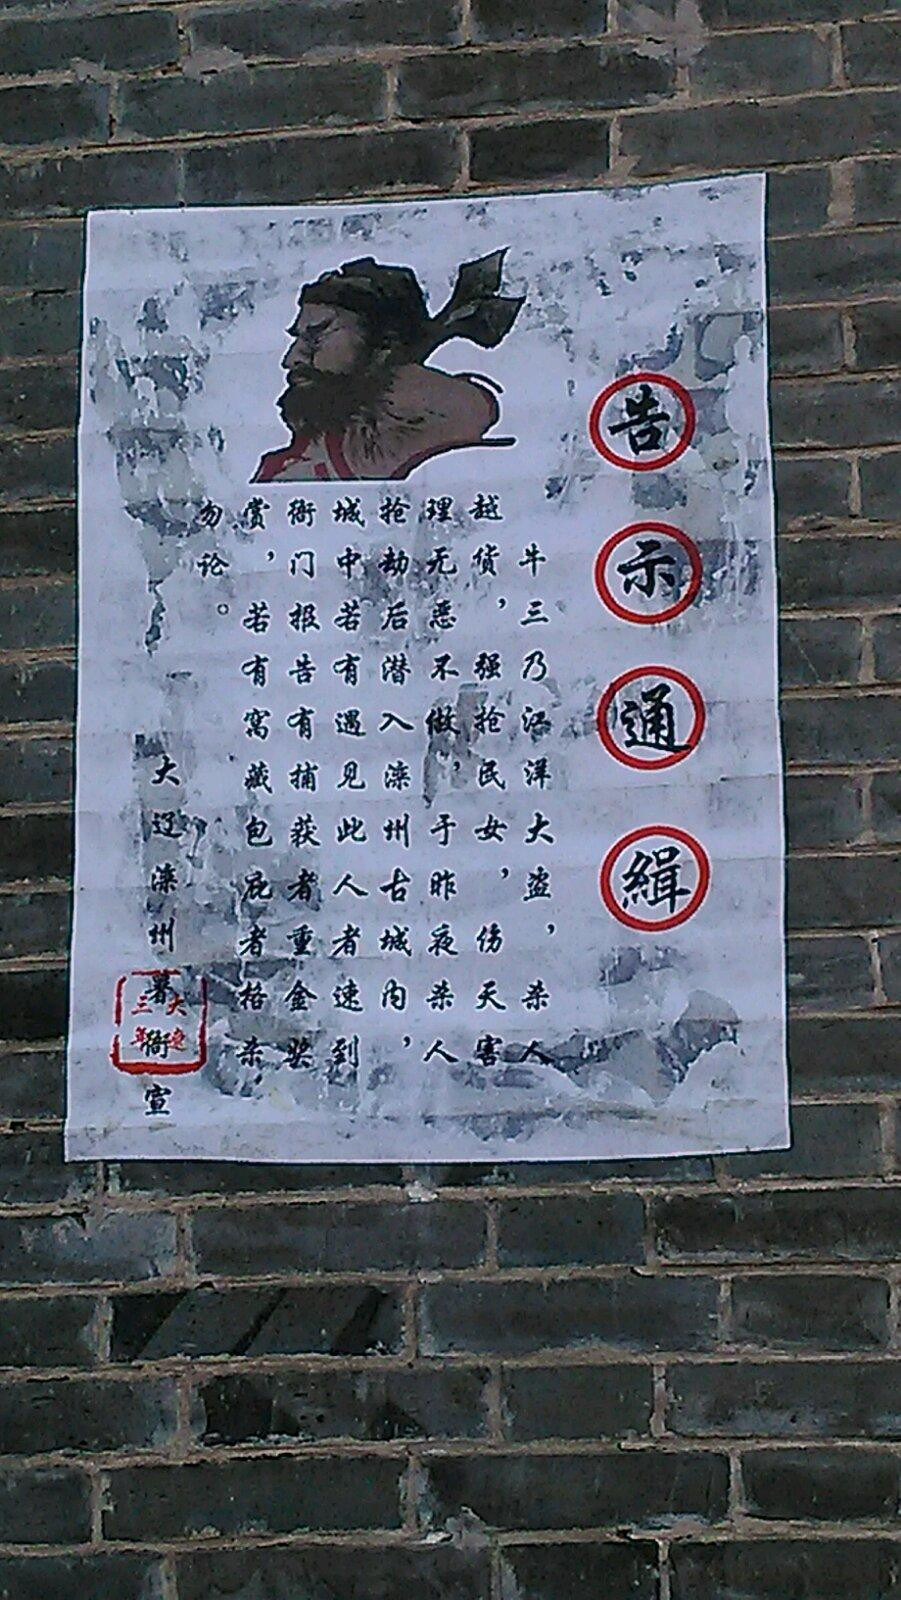 告示通緝
牛三乃江洋大盗，杀人
越货，强抢民女，伤天害
理无恶不做，于昨夜杀人
抢劫后潜入滦州古城内，
城中若有遇见此人者速到
衙门报告有捕获者重金奖
赏，若有窝藏包庇者格杀
勿论。
大辽滦州署衙宣
大辽
三年